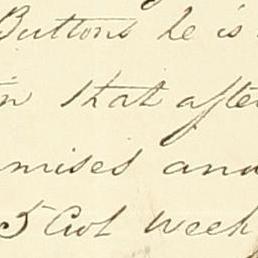 Buttons he is
in that after
mises and
5 Cwt week